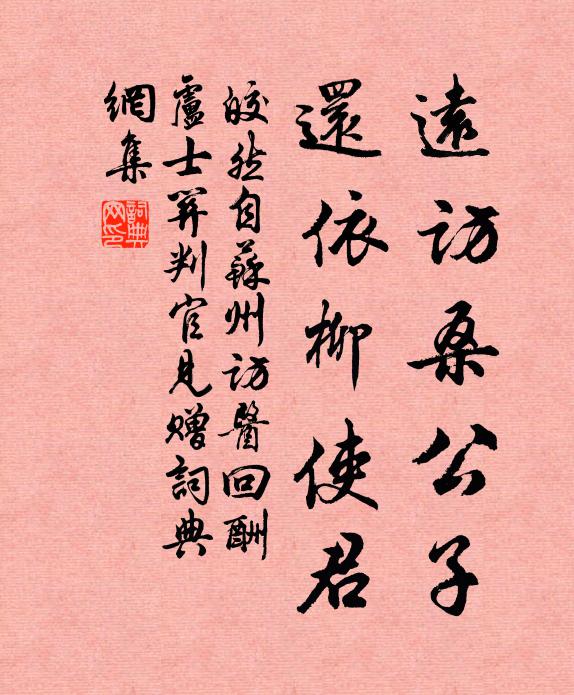 遠訪桑公子
還依柳使君
皎然自蘇州訪醫回酬
盧士關判官見贈詞典
網集
詞典網印